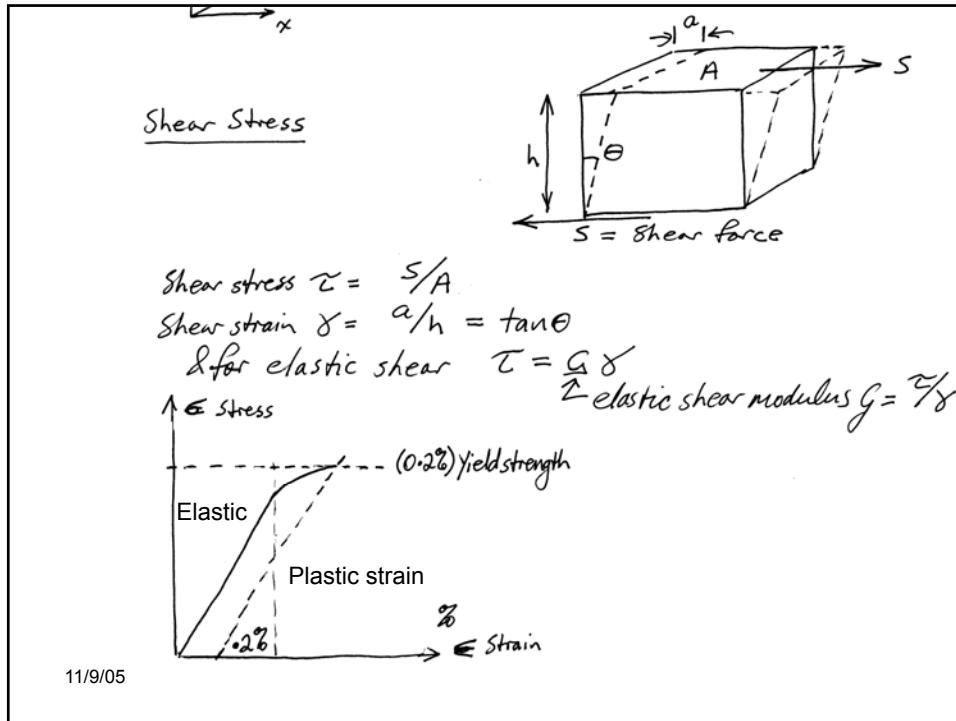 x
a
A
S
Shear Stress
h
θ
S = Shear force
Shear stress τ = S/A
Shear strain γ = a/h = tanθ
& for elastic shear τ = G γ
elastic shear modulus G = τ/γ
Stress
(0.2%) Yield strength
Elastic
Plastic strain
%
.2%
ϵ Strain
11/9/05